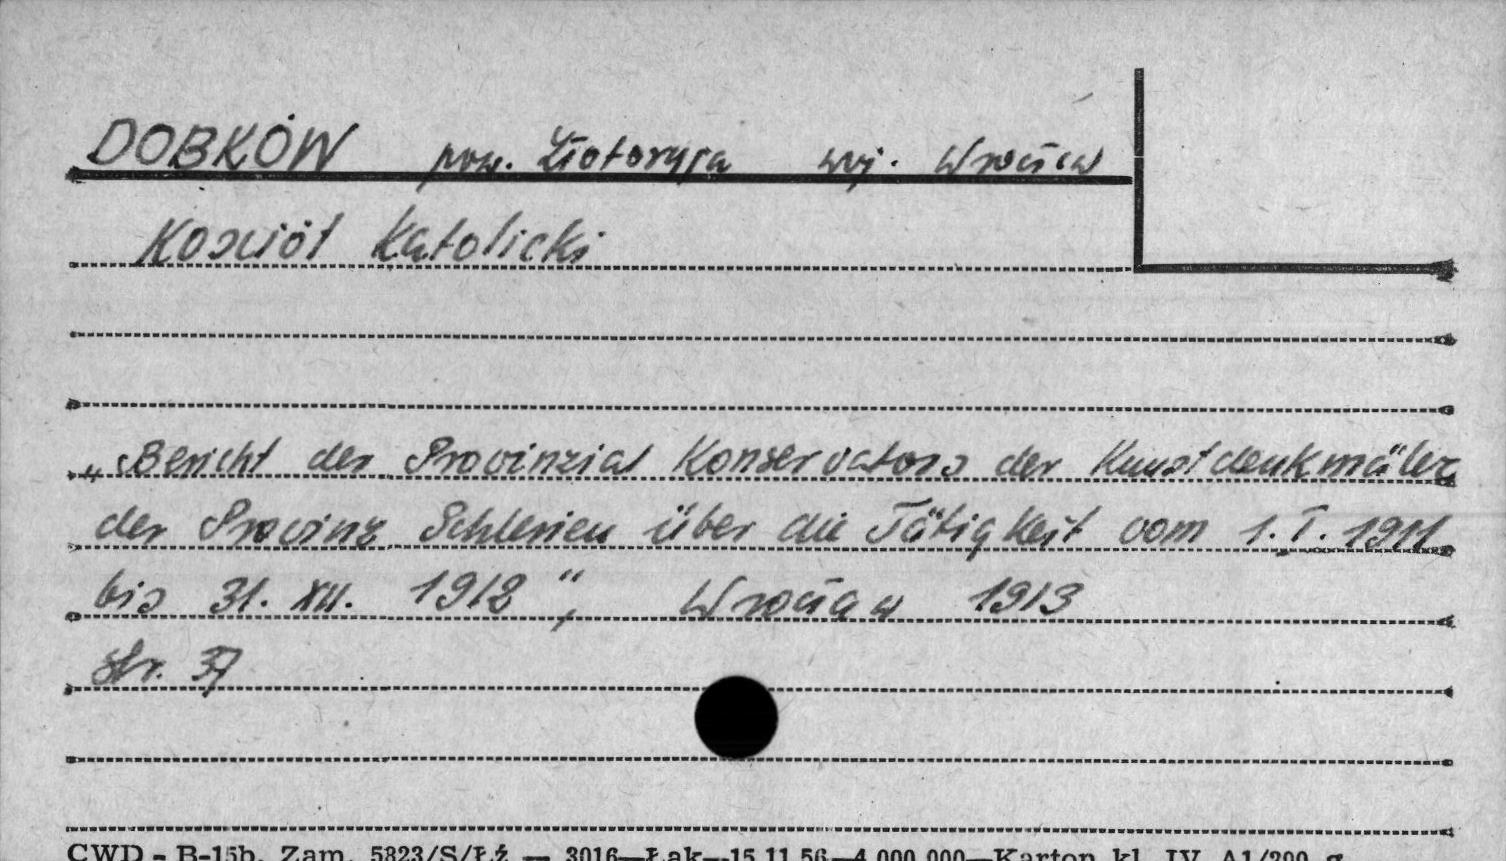 DOBKÓW pow. Złotoryja woj. Wrocław
Kościół Katolicki
„Bericht des Provinzial Konservators der Kunstdenkmäler
der Provinz Schlesien über die Tätigkeit vom 1.I.1911
bis 31. XII. 1912“, Wrocław 1913
str. 37
CWD - B-15b. Zam. 5823/S/ŁŹ — 3016—Łak—15.11.56—4.000.000—Karton kl. IV. A1/200 g